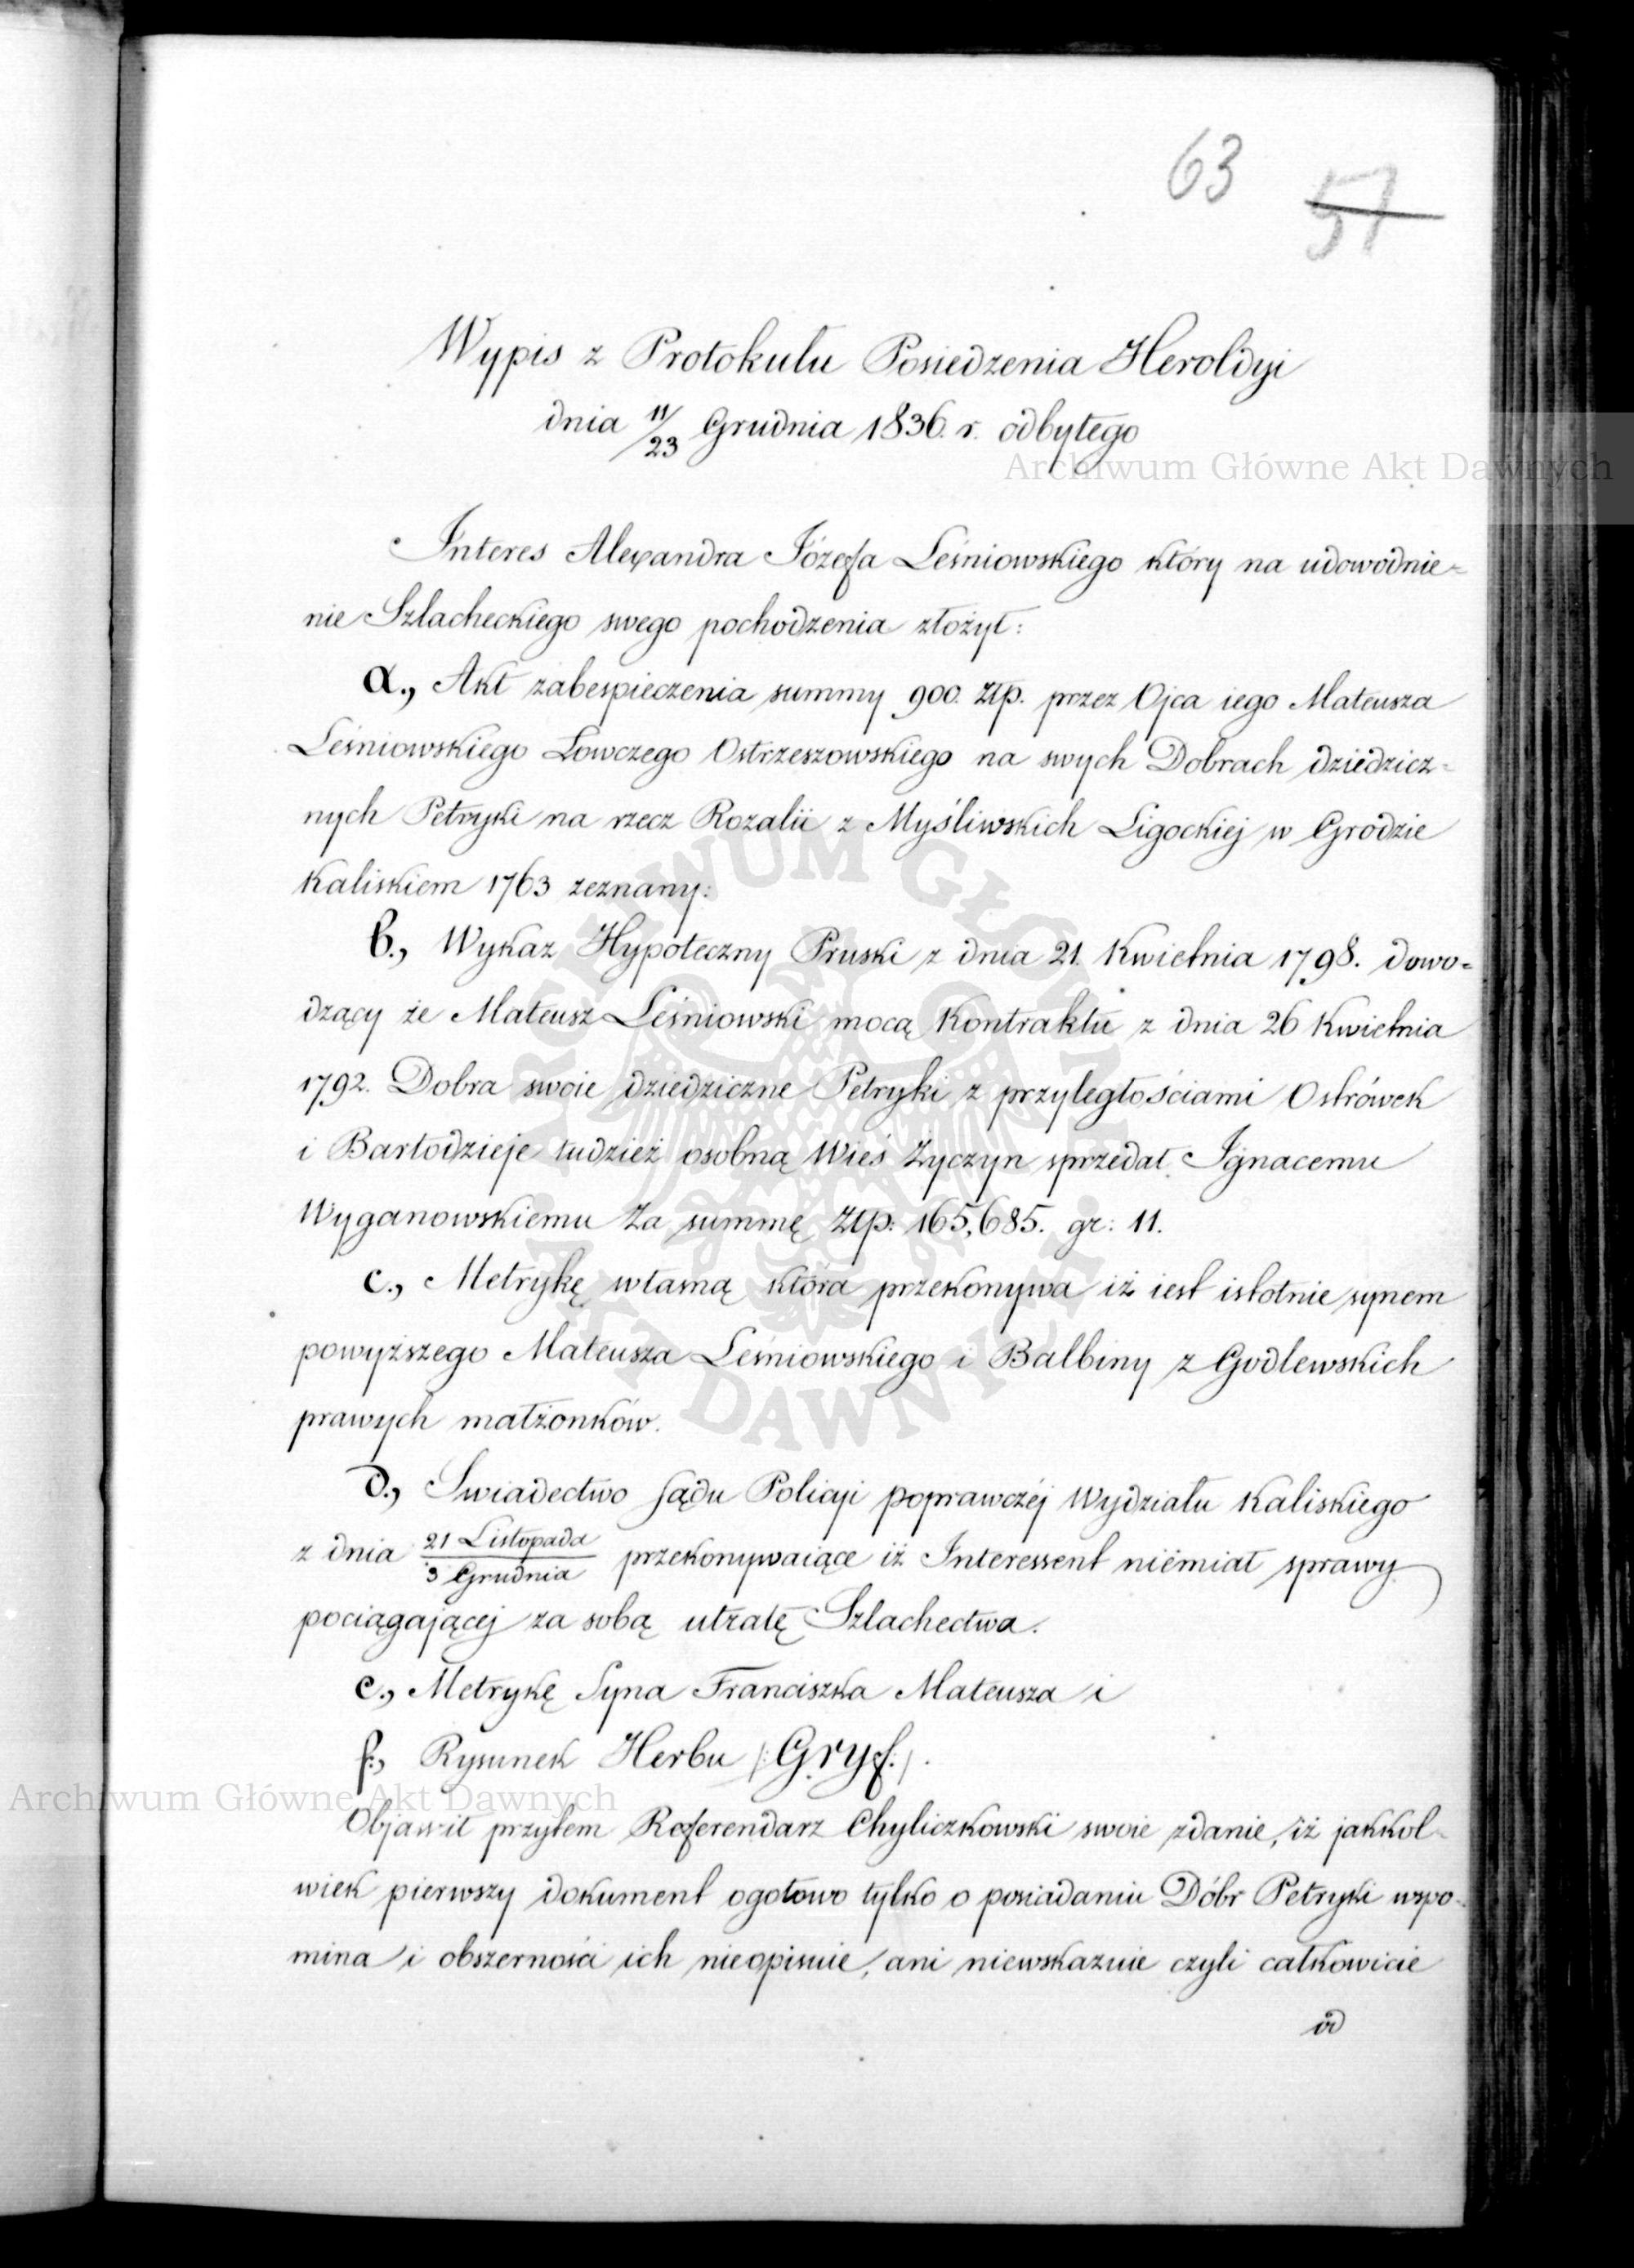 63 57
Wypis z Protokułu Posiedzenia Heroldyi
dnia 11/23 Grudnia 1836. r. odbytego
Archiwum Główne Akt Dawnych
Interes Alexandra Józefa Leśniowskiego który na udowodnie=
nie Szlacheckiego swego pochodzenia złożył:
a., Akt zabespieczenia summy 900. złp. przez Ojca iego Mateusza
Leśniowskiego Łowczego Ostrzeszowskiego na swych Dobrach dziedzicz=
nych Petryki na rzecz Rozalii z Myśliwskich Ligockiej w Grodzie
Kaliskiem 1763 zeznany:
b., Wykaz Hypoteczny Pruski z dnia 21. Kwietnia 1798. dowo=
dzący że Mateusz Leśniowski mocą Kontraktu z dnia 26 Kwietnia
1792. Dobra swoie dziedziczne Petryki z przyległościami Ostrówek
i Bartodzieje tudzież osobną Wieś Życzyn sprzedał Ignacemu
Wyganowskiemu Za summę Złp: 165,685. gr: 11.
c., Metrykę własną która przekonywa iż iest istotnie synem
powyższego Mateusza Leśniowskiego i Balbiny z Godlewskich
prawych małżonków.
d., Swiadectwo Sądu Policyi poprawczéj Wydziału Kaliskiego
z dnia 21 Listopada/3 Grudnia przekonywaiące iż Interessent niemiał sprawy
pociągającej za sobą utratę Szlachectwa.
e., Metrykę Syna Franciszka Mateusza i
f., Rysunek Herbu /:Gryf:/.
Archiwum Główne Akt Dawnych
Objawił przytem Referendarz Chyliczkowski swoie zdanie, iż jakkol=
wiek pierwszy dokument ogołowo tylko o posiadaniu Dóbr Petryki wspo=
mina i obszerności ich nieopisuie, ani niewskazuie czyli całkowicie
od
ARCHIWUM GŁÓWNE AKT DAWNYCH